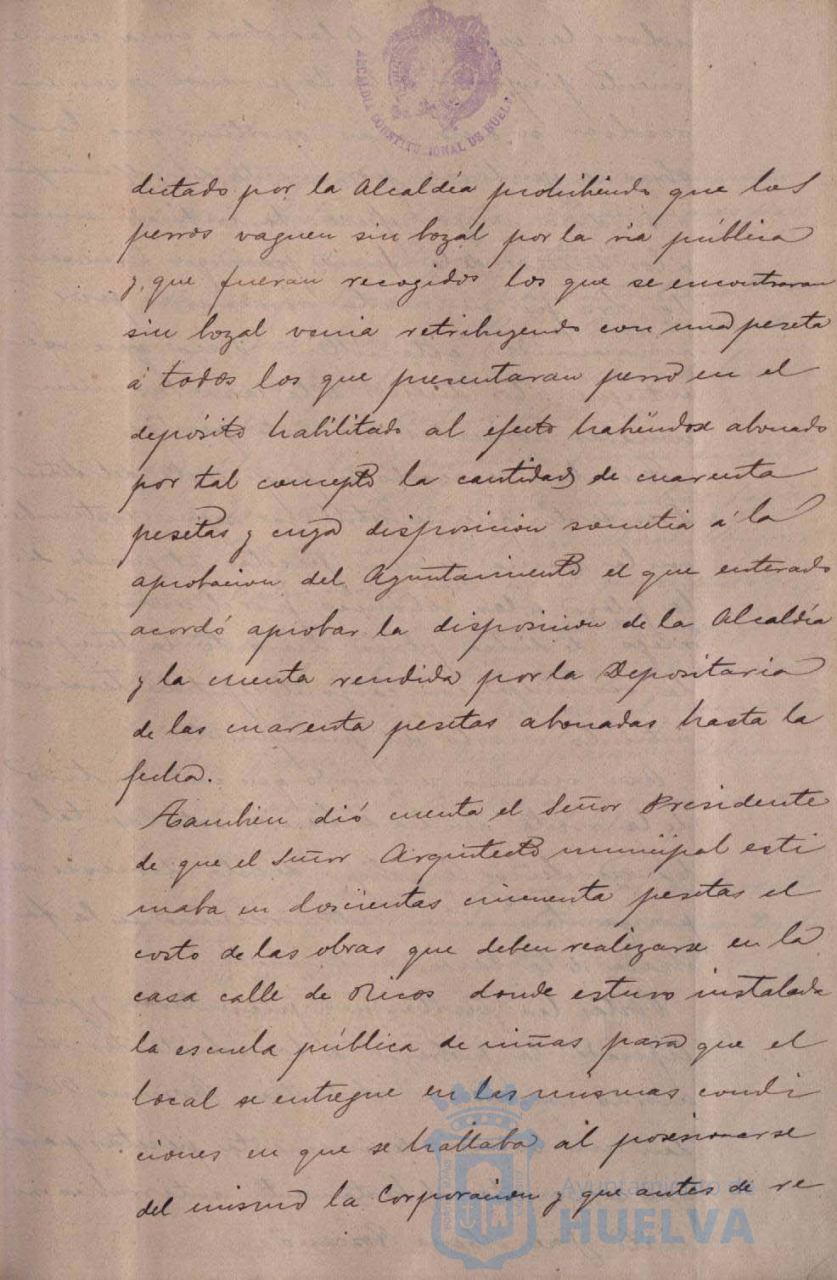 ALCALDIA CONSTITUCIONAL DE HUELVA
dictado por la Alcaldía prohibiendo que los
perros vaguen sin bozal por la via pública
y que fueran recogidos los que se encontraran
sin bozal venia retribuyendo con una peseta
á todos los que presentaran perro en el
depósito habilitado al efecto habiéndose abonado
por tal concepto la cantidad de cuarenta
pesetas y cuya disposicion sometia á la
aprobacion del Ayuntamiento el que enterado
acordó aprobar la disposicion de la Alcaldía
y la cuenta rendida por la Depositaria
de las cuarenta pesetas abonadas hasta la
fecha.
Tambien dió cuenta el Señor Presidente
de que el Señor Arquitecto municipal esti
maba en doscientas cincuenta pesetas el
costo de las obras que deben realizarse en la
casa calle de Ricos donde estuvo instalada
la escuela pública de niñas para que el
local se entregue en las mismas condi
ciones en que se hallaba al posesionarse
del mismo la Corporacion y que antes de re
Ayuntamiento de
HUELVA